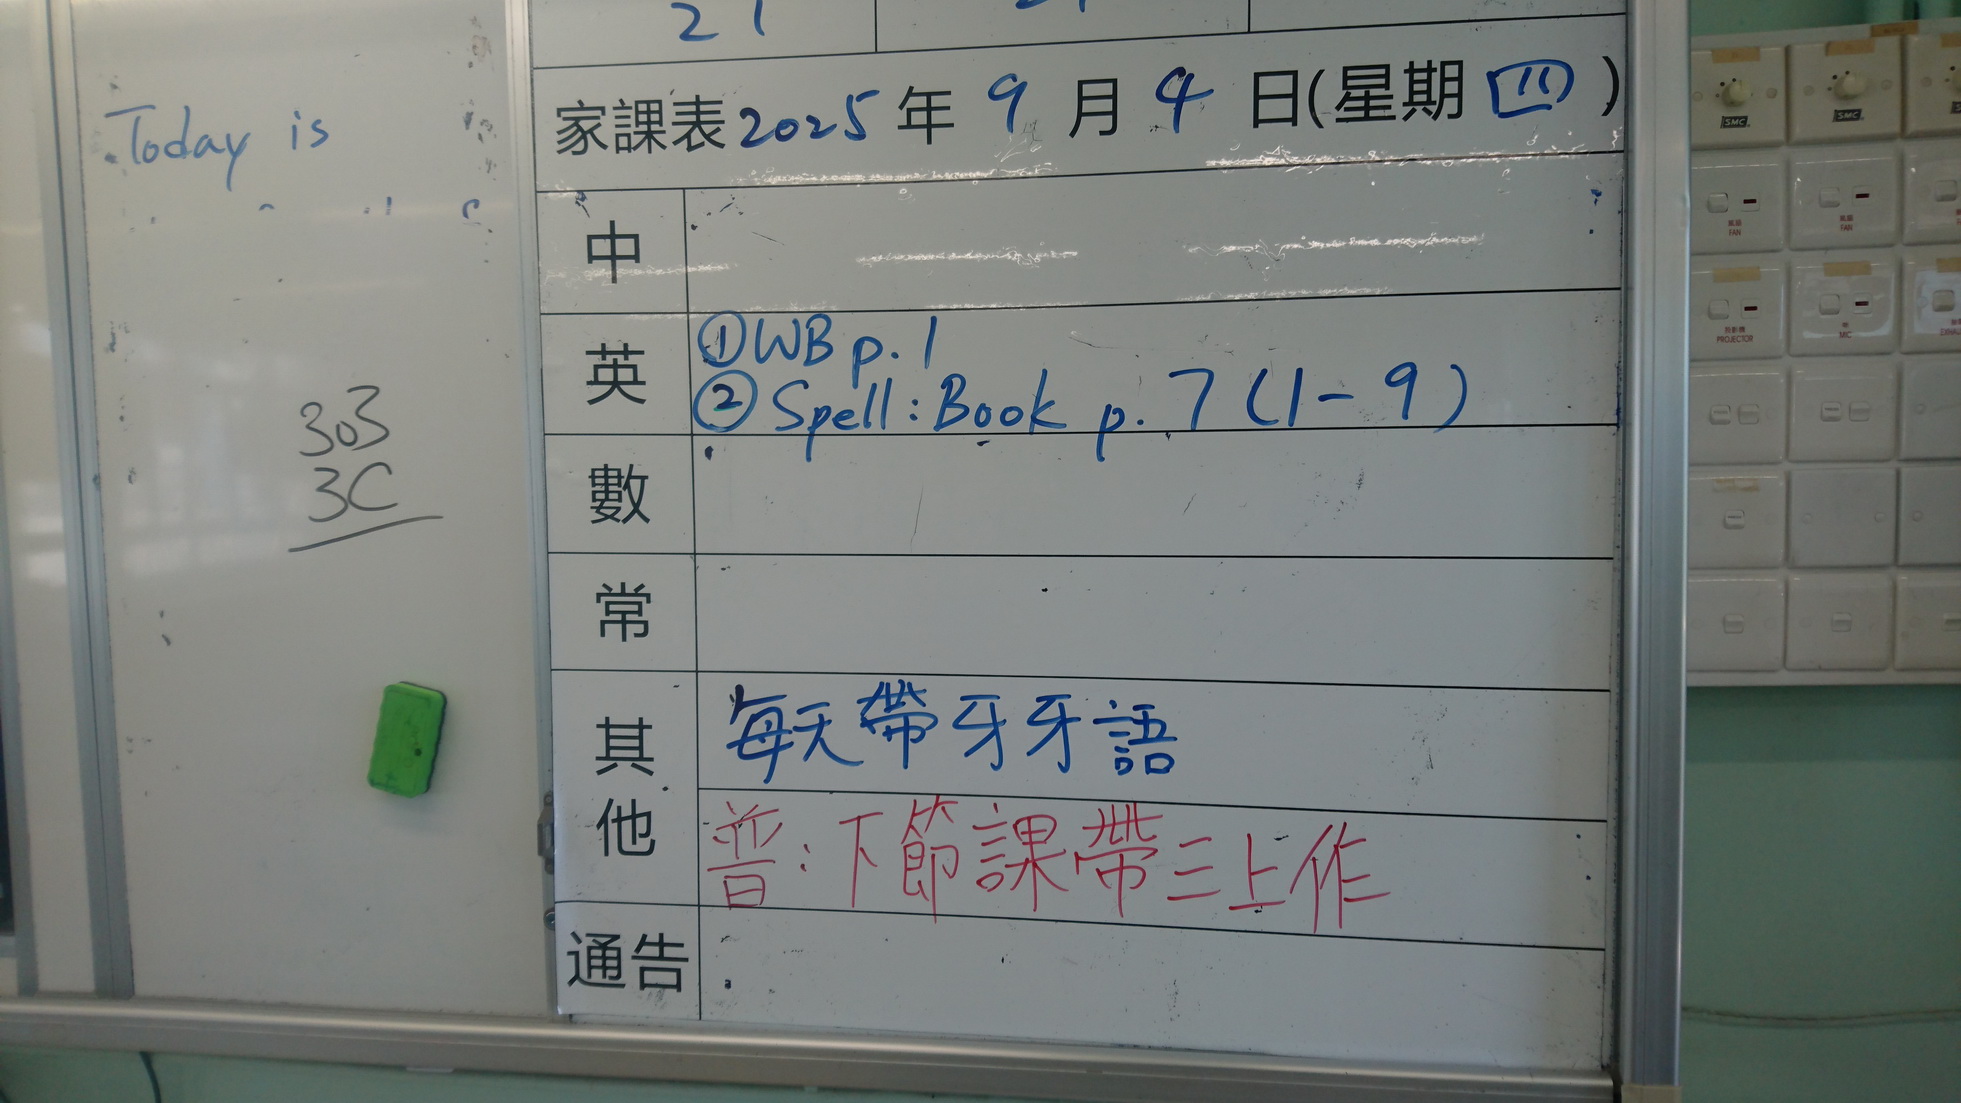 Today is
303
3C
21
家課表2025年9月4日(星期四)
中
英
①WB p.1
②Spell:Book p.7(1-9)
數
常
其他
每天帶牙牙語
普:下節課帶三上作
通告
SMC
SMC
風扇
FAN
風扇
FAN
投影機
PROJECTOR
MIC